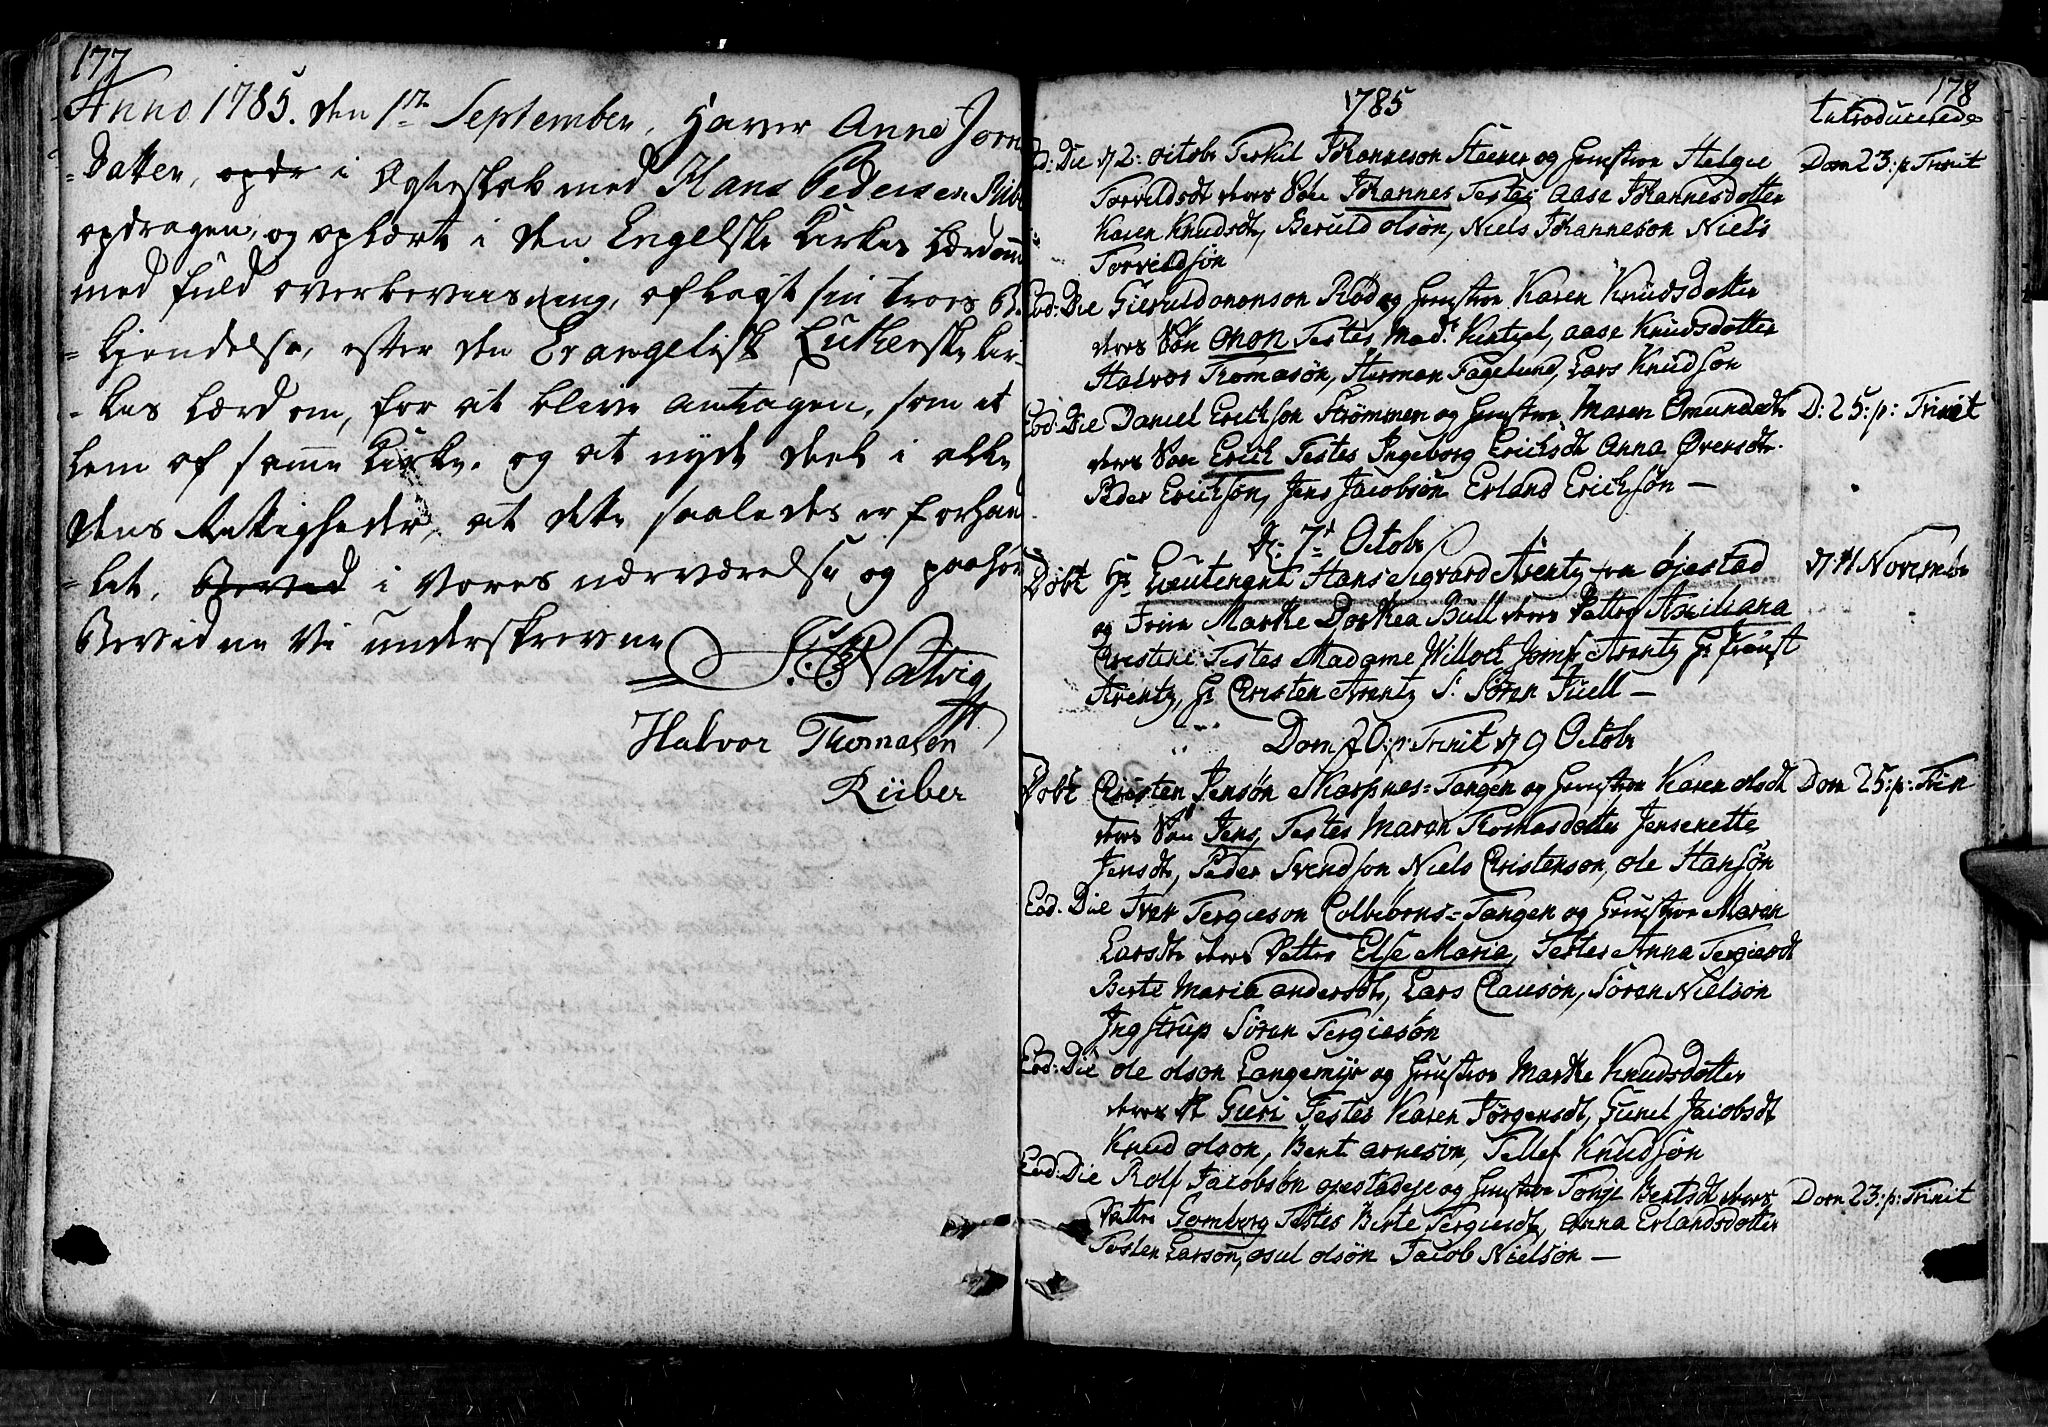 177
Anno 1785. den 1te September, Haver Anne Jorns
-Datter, opdr i Egteskab med Hans Pedersen Riiber
opdragen, og oplært i den Engelske Kirkes Lærdom
med fuld overbeviisning, aflagt sin troes Be-
-kjendelse, efter den Evangelisk Lutherske Kir-
-kes Lærdom, for at blive antagen, som et
Lem af samme Kirke. og at nyde deel i alle
dens Rettigheder, at dette saaledes er forhan
-let, Bevid i Vores nærværelse og paahør
Bevidne Vi underskrevne
F. C. Natvig
Halvor Thomasen
Riiber
178
1785
Introducerede
Eod: Die d 2: octobr Terkil Johanneson Steener og Hustroe Helgie Dom 23: p: Trinit
Torvildsdt deres Søn Johannes Testes Aase Johannesdotter
Karen Knudsdt, Beruld olsøn, Niels Johanneson Niels
Torvildsøn
Eod: Die Gieruld ononson Röd og Hustroe Karen Knudsdotter
deres Søn Onon Testes Mad: Kintzel, Aase Knudsdotter
Halvor Thomasøn, Herman Fagelund, Lars Knudsøn
Eod: Die Daniel Erichsøn Strömmen og Hustroe Maren Omundsdt D: 25: p: Trinit
deres Søn Erich Testes Ingeborg Erichsdt Anna Oversdt.
Peder Erichsøn, Jens Jacobsøn Erland Erichsøn —
D: 7de Octobr
Döbt Hr Lieutenant Hans Sigvard Arentz fra Øjestad d 11 November
og Fruen Marthe Dorthea Bull deres Datter Axiliana
Christine Testes Madame Willoch Jomf: Arentz Hr Proust
Arentz, Hr Christen Arentz S: Søren Juell —
Dom 20: p: Trinit d 9 Octobr
Döbt Christen Jensøn Skarpnes=Tangen og Hustroe Karen olsdt Dom 25: p: Trin
deres Søn Jens, Testes Maren Thomasdotter Jensenette
Jensdt, Peder Svendsøn Niels Christenson, ole Hansøn
Eod. Die Iver Tergieson Colbiorns=Tangen og Hustroe Maren
Larsdt deres Datter Else Maria, Testes Anna Tergiesdt
Berte Maria andersdt, Lars Clausøn, Søren Nielsøn
Ingstrup Søren Tergiesøn
Eod: Die ole olson Langemyr og Hustroe Marthe Knudsdotter
deres dt Guri Testes Karen Jørgensdt, Gunel Jacobsdt
Knud olson, Bent arnesøn, Tellef Knudsøn
Eod: Die Rolf Jacobsøn og Hustroe Tonje Bentsdt deres Dom 23: p: Trinit
Datter Gomborg Testes Berte Tergiesdt, Anna Erlandsdotter
Tosten Larson, osul olsøn Jacob Nielsøn —